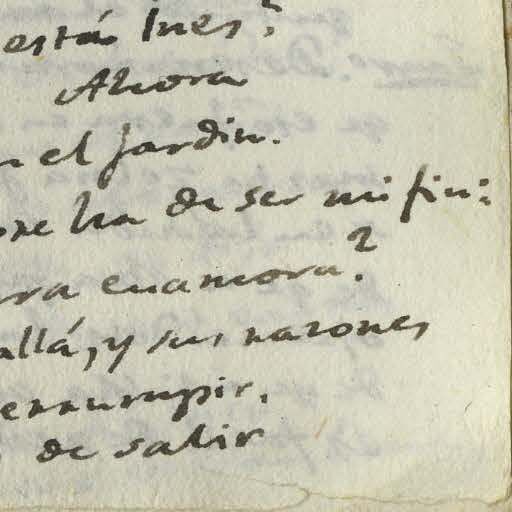 está Ines?
Ahora
n el jardin.
pre ha de ser mi fin:
rra enamora?
allá, y sus razones
errumpir.
de salir